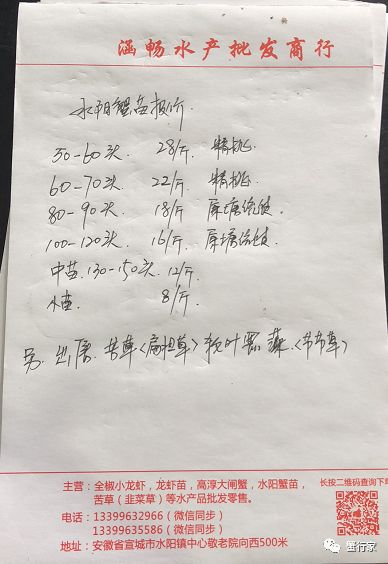 涵畅水产批发商行
水阳蟹苗报价
50-60头 28/斤 精挑.
60-70头 22/斤 精挑.
80-90头 18/斤 原塘统货.
100-120头 16/斤 原塘统货.
中苗.130-150头.12/斤.
小苗. 8/斤.
另.出售.苦草<扁担草>轮叶黑藻.<节节草>
主营：全椒小龙虾，龙虾苗，高淳大闸蟹，水阳蟹苗，
苦草（韭菜草）等水产品批发零售。
电话：13399632966（微信同步）
13399635586（微信同步）
地址：安徽省宣城市水阳镇中心敬老院向西500米
长按二维码查询下
蟹行家